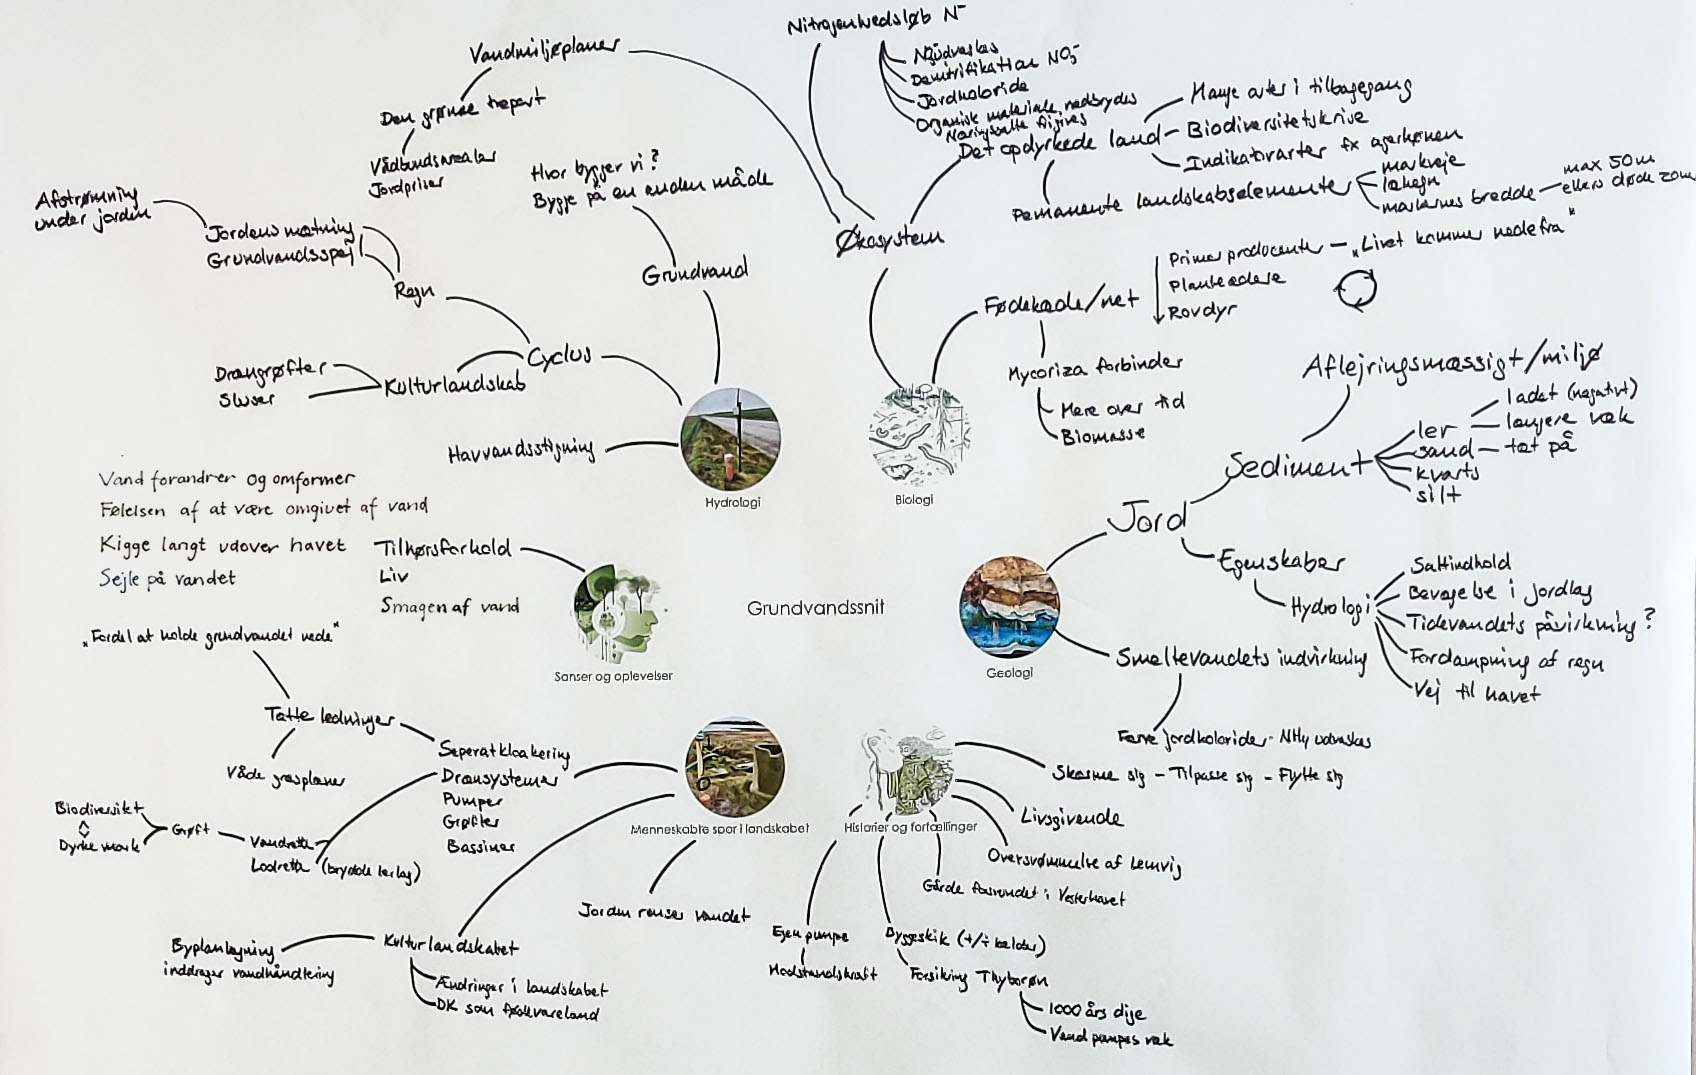 Vandmiljøplaner
Den grønne trepart
Vådbundsarealer
Jordpriser
Nitrogenkredsløb N⁻
N₂ udvaskes
Denitrifikation NO₃⁻
Jordkoloride
Organisk materiale nedbrydes
Næringssalte frigives
Det opdyrkede land
Mange arter i tilbagegang
Biodiversitetskrise
Indikatorarter fx agerhønen
Permanente landskabselementer
markveje
læhegn
markernes bredde
max 50m
ellers døde zoner
Økosystem
Hvor bygger vi?
Bygge på en anden måde
Grundvand
Afstrømning
under jorden
Jordens mætning
Grundvandsspejl
Regn
Cyclus
Kulturlandskab
Drængrøfter
Sluser
Havvandsstigning
Hydrologi
Fødekæde/net
Primær producenter – „Livet kommer nedefra"
Planteædere
Rovdyr
Mycoriza forbinder
Mere over tid
Biomasse
Biologi
Aflejringsmæssigt/miljø
Sediment
ler
ladet (negativt)
længere væk
sand – tæt på
kvarts
silt
Jord
Egenskaber
Hydrologi
Saltindhold
Bevægelse i jordlag
Tidevandets påvirkning?
Fordampning af regn
Vej til havet
Geologi
Smeltevandets indvirkning
Færre jordkolorider - NH₄ udvaskes
Grundvandssnit
Vand forandrer og omformer
Følelsen af at være omgivet af vand
Kigge langt udover havet
Sejle på vandet
Tilhørsforhold
Liv
Smagen af vand
Sanser og oplevelser
„Fordel at holde grundvandet nede"
Tætte ledninger
Våde græsplaner
Seperatkloakering
Drænsystemer
Pumper
Grøfter
Bassiner
Biodiversitet
Dyrke mark
Grøft
Vandrette
Lodrette (brydde lerlag)
Menneskabte spor i landskabet
Jorden renser vandet
Kulturlandskabet
Byplanlægning
inddrager vandhåndtering
Ændringer i landskabet
DK som fødevareland
Historier og fortællinger
Skærme sig – Tilpasse sig – Flytte sig
Livsgivende
Oversvømmelse af Lemvig
Gårde forsvundet i Vesterhavet
Egen pumpe
Modstandskraft
Byggeskik (+/÷ kælder)
Forsikring Thyborøn
1000 års dige
Vand pumpes væk